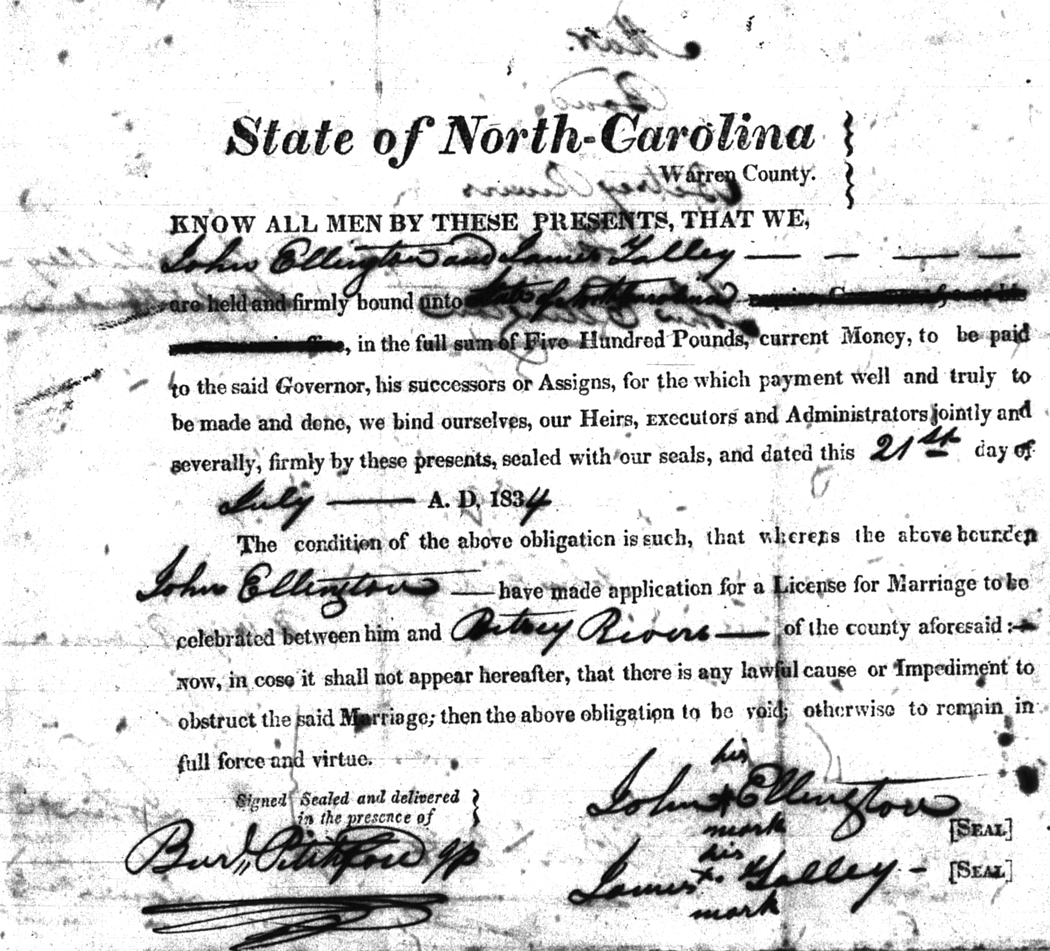 State of North-Carolina
Warren County.
KNOW ALL MEN BY THESE PRESENTS, THAT WE,
John Ellington and James Talley
are held and firmly bound unto State of North Carolina
, in the full sum of Five Hundred Pounds, current Money, to be paid
to the said Governor, his successors or Assigns, for the which payment well and truly to
be made and done, we bind ourselves, our Heirs, EXECUTORS and Administrators jointly and
severally, firmly by these presents, sealed with our seals, and dated this 21st day of
July — A. D. 1834
The condition of the above obligation is such, that whereas the above bounden
John Ellington — have made application for a License for Marriage to be
celebrated between him and Betsey Rivers — of the county aforesaid:
NOW, in case it shall not appear hereafter, that there is any lawful cause or Impediment to
obstruct the said Marriage; then the above obligation to be void; otherwise to remain in
full force and virtue.
Signed Sealed and delivered
in the presence of
Burl Pitchford jp
his
John + Ellington
mark
[SEAL]
his
James x Talley - [SEAL]
mark